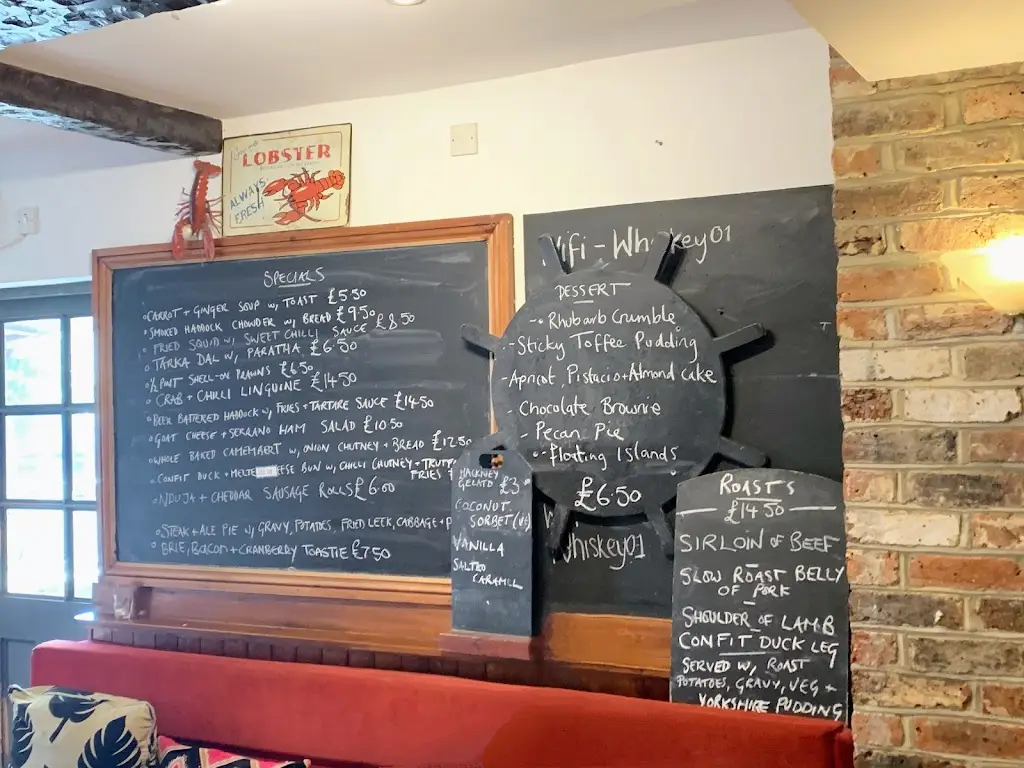 LOBSTER
ALWAYS
FRESH
SPECIALS
CARROT + GINGER SOUP w, TOAST £5.50
SMOKED HADDOCK CHOWDER w, BREAD £9.50
FRIED SQUID w, SWEET CHILLI SAUCE £8.50
TARKA DAL w, PARATHA £6.50
½ PINT SHELL-ON PRAWNS £6.50
CRAB + CHILLI LINGUINE £14.50
BEER BATTERED HADDOCK w, FRIES + TARTARE SAUCE £14.50
GOAT CHEESE + SERRANO HAM SALAD £10.50
WHOLE BAKED CAMEMBERT w, ONION CHUTNEY + BREAD £12.50
CONFIT DUCK + BUN w, CHILLI CHUTNEY +
FRIES
NDUJA + CHEDDAR SAUSAGE ROLLS £6.00
STEAK + ALE PIE w, GRAVY, POTATOES, FRIED LEEK, CABBAGE +
BRIE, BACON + CRANBERRY TOASTIE £7.50
HACKNEY
GELATO £3
COCONUT
SORBET (VE)
VANILLA
SALTED
CARAMEL
Wifi - Whiskey01
DESSERT
- Rhubarb Crumble
- Sticky Toffee Pudding
- Apricot, Pistacio + Almond Cake
- Chocolate Brownie
- Pecan Pie
- Floating Islands
£6.50
Whiskey01
ROAST'S
£14.50
SIRLOIN OF BEEF
SLOW ROAST BELLY
OF PORK
SHOULDER OF LAMB
CONFIT DUCK LEG
SERVED w, ROAST
POTATOES, GRAVY, VEG +
YORKSHIRE PUDDING